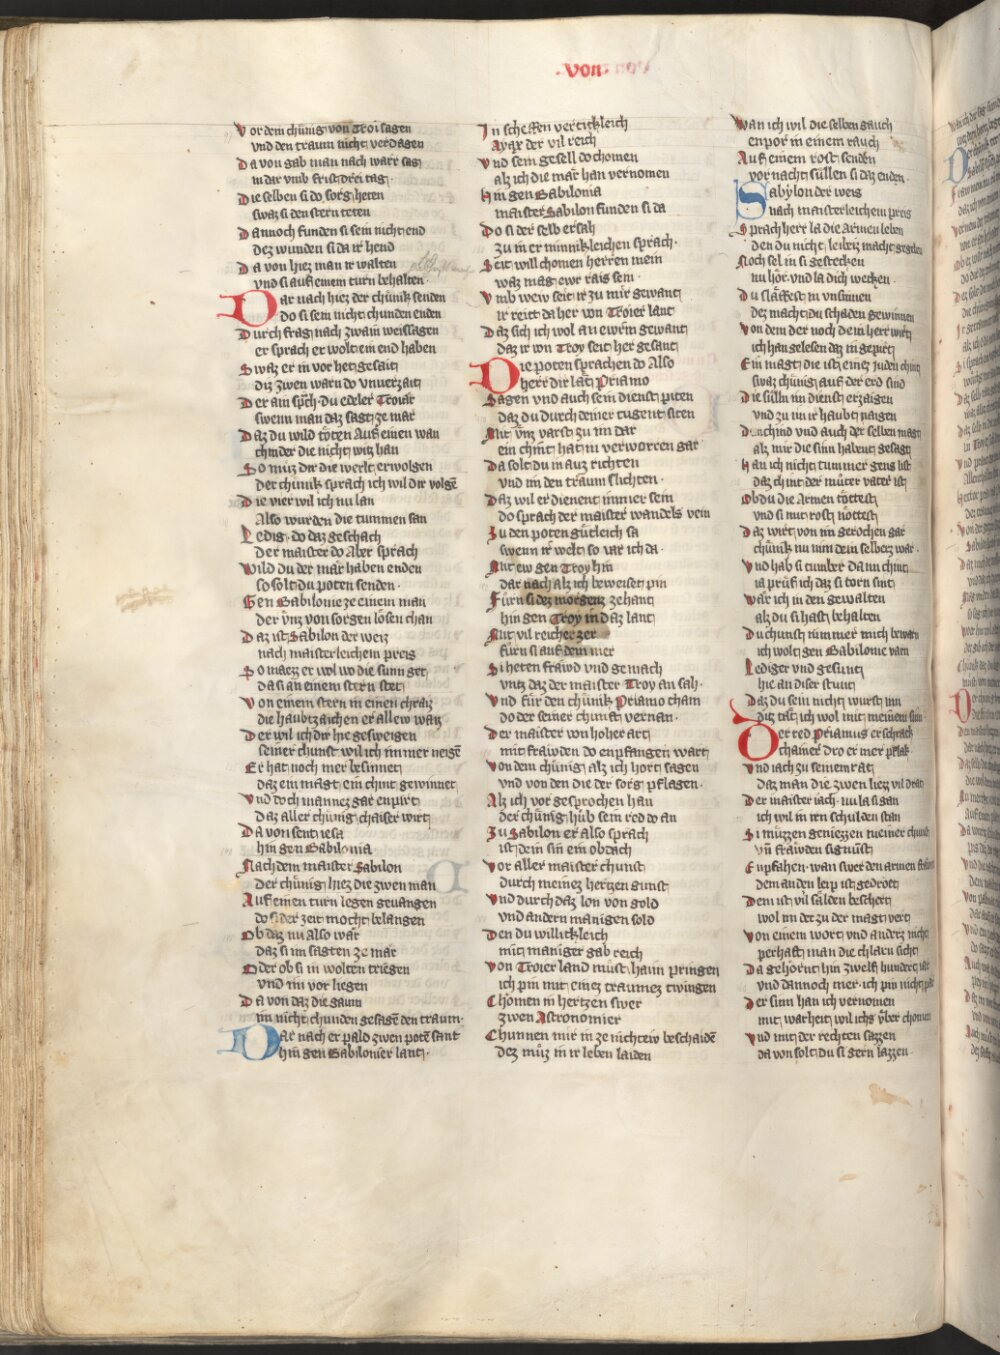 von
Vor dem chünig von Troi sagen
vnd den traum nicht verdagen
Da von gab man nach warr sag
in dar vmb frist drei tag
Die selben si do sorg heten
swaz si den stern teten
Dannoch funden si sein nicht end
dez wunden si da ir hend
Da von hiez man ir walten
vnd si auf einem turn behalten
Dar nach hiez der chünik senden
do si sein nicht chunden enden
Durch frag nach zwain weissagen
er sprach er wolt ein end haben
Swaz er in vor het gesait
diz zwen warn do vnuerzait
Der ain sprch du edeler Troiar
swenn man daz sagt ze mar
Daz du wild töten Auf einen wan
chinder die nicht witz han
So müz dir die werlt erwolgen
Der chünik sprach ich wil dir volgen
Die vier wil ich nu lan
Also wurden die tummen san
Ledig do daz geschach
der maister do Aber sprach
Wild du der mär haben enden
so solt du poten senden
Gen Babilonie ze einem man
der vnz von sorgen lösen chan
Daz ist Sabilon der weiz
nach maisterleichem preis
So maezz er wol wo die sunn get
da si an einem stern stet
Von einem stern in einen chraiz
die haubtzaichen er allew waiz
Der wil ich dir hie gesweigen
seiner chunst wil ich immer neigen
Er hat noch mer besinnet
daz ein magt ein chint gewinnet
Vnd doch mannez gar enpirt
daz aller chünig chaiser wirt
Da von sent iesa
hin gen Babilonia
Nach dem maister Sabilon
Der chünig hiez die zwen man
Auf einen turn legen geuangen
do si der zeit mocht belangen
Ob daz nu Also wär
daz si im sagten ze mar
Oder ob si in wolten triegen
vnd im vor liegen
Da von daz die gaum
im nicht chunden gesagen den traum
Dar nach er pald zwen poten sant
hin gen Babilonier lant
In scheffen vertichleich
Ayar der vil reich
Vnd sein gesell do chomen
alz ich die mar han vernomen
Hin gen Babilonia
maister Sabilon funden si da
Do si der selb ersah
zu in er minnikleichen sprach
Seit willchomen herren mein
waz mag ewr rais sein
Vmb wew seit ir zu mir gewant
ir reitt da her von Troier lant
Daz sich ich wol an ewrm gewant
daz ir von Troy seit her gesant
Die poten sprachen do Also
herr dir lat Priamo
Sagen vnd auch sein dienst piten
daz du durch deiner tugent siten
Mit vnz varst zu im dar
ein chint hat in verworren gar
Da solt du in auz richten
vnd im den traum slichten
Daz wil er dienent immer sein
do sprach der maister wandels vein
Zu den poten gütleich sa
swenn ir welt so var ich da
Mit ew gen Troy hin
dar nach alz ich beweiset pin
Fürn si dez morgenz zehant
hin gen Troy in daz lant
Mit vil reicher zer
fürn si auf dem mer
Si heten frawd vnd gemach
vntz daz der maister Troy an sah
Vnd für den chünik Priamo cham
do der seiner chunst vernam
Der maister von holer art
mit frawden do enpfangen wart
Von dem chünig alz ich hort sagen
vnd von den die der sorg pflagen
Alz ich vor gesprochen han
der chünig hüb sein red do an
Zu Sabilon er also sprach
ist dein sin ein obdach
Vor aller maister chunst
durch meinez hertzen gunst
Vnd durch daz lon von gold
vnd andern manigen sold
Den du willikleich
mit maniger gab reich
Von Troier land müst haim pringen
ich pin mit einez traumez twingen
Chomen in hertzen swer
zwen Astronomier
Chunnen mir in ze nichtew beschaiden
dez müz in ir leben laiden
Wan ich wil die selben gauch
enpor in einem rauch
Auf einem rost senden
vor nacht süllen si daz enden
Sabylon der weis
nach maisterleichem preis
Sprach herr la die Armen leben
den du nicht leibez macht gegeben
Noch sel in si gestecken
nu hör vnd la dich wecken
Du slaffest in vnsinnen
dez macht du schaden gewinnen
Von dem der noch dein herr wirt
ich han gelesen daz in gepirt
Ein magt die ist einez iuden chint
swaz chünig auf der erd sind
Die sülln im dienst erzaigen
vnd zu im ir haubt naigen
Den chind vnd auch der selben magt
alz mir die sinn habent gesagt
Han ich nicht tummer gens list
daz chint der müter vater ist
Ob du die Armen tottest
vnd si mit rost nöttest
Daz wirt von im gerochen gar
chünik nu nim dein selbez war
Vnd hab si tumber dann chint
ia prüf ich daz si torn sint
Wär ich in den gewalten
alz du si hast behalten
Du chunst nimmer mich bewarn
ich wolt gen Babilonie varn
Lediger vnd gesunt
hie an diser stunt
Daz du sein nicht wurst inn
diz tät ich wol mit meinem sin
Der red Priamus erschrak
chainer dro er mer pflak
Vnd iach zu seinem rat
daz man die zwen liezz vil drat
Der maister iach nu la si gan
ich wil in irn schulden stan
Si müzzen geniezzen meiner chunst
vnd frawden signust
Enpfahen wan swer den armen
dem anden leip ist gedröet
Dem ist vil sälden beschert
wol im der zu der magt vert
Von einem wort vnd anderz nicht
perhaft man die chlaru sicht
Da gehörnt hin zwelf hundert iar
vnd dannoch mer ich pin nicht
Der sinn han ich vernomen
mit warheit wil ichs vber chomen
Vnd mit der rechten sazzen
da von solt du si gern lazzen